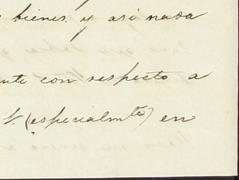 bienes, y así nada
ente con respecto a
(especialmte) en